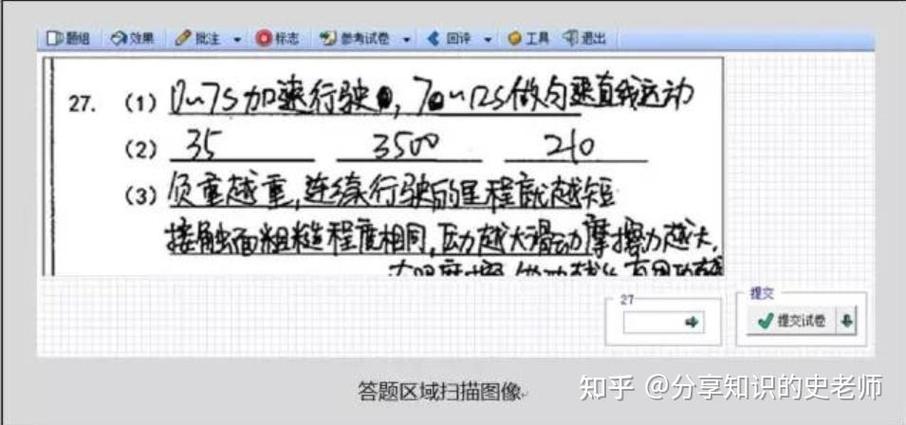 题组 效果 批注 标志 参考试卷 回评 工具 退出
27. (1) 0~7s加速行驶，7~12s做匀速直线运动
(2) 35 3500 210
(3) 负重越重，连续行驶的里程就越短
接触面粗糙程度相同，压力越大滑动摩擦力越大，
27
提交
提交试卷
答题区域扫描图像
知乎 @分享知识的史老师